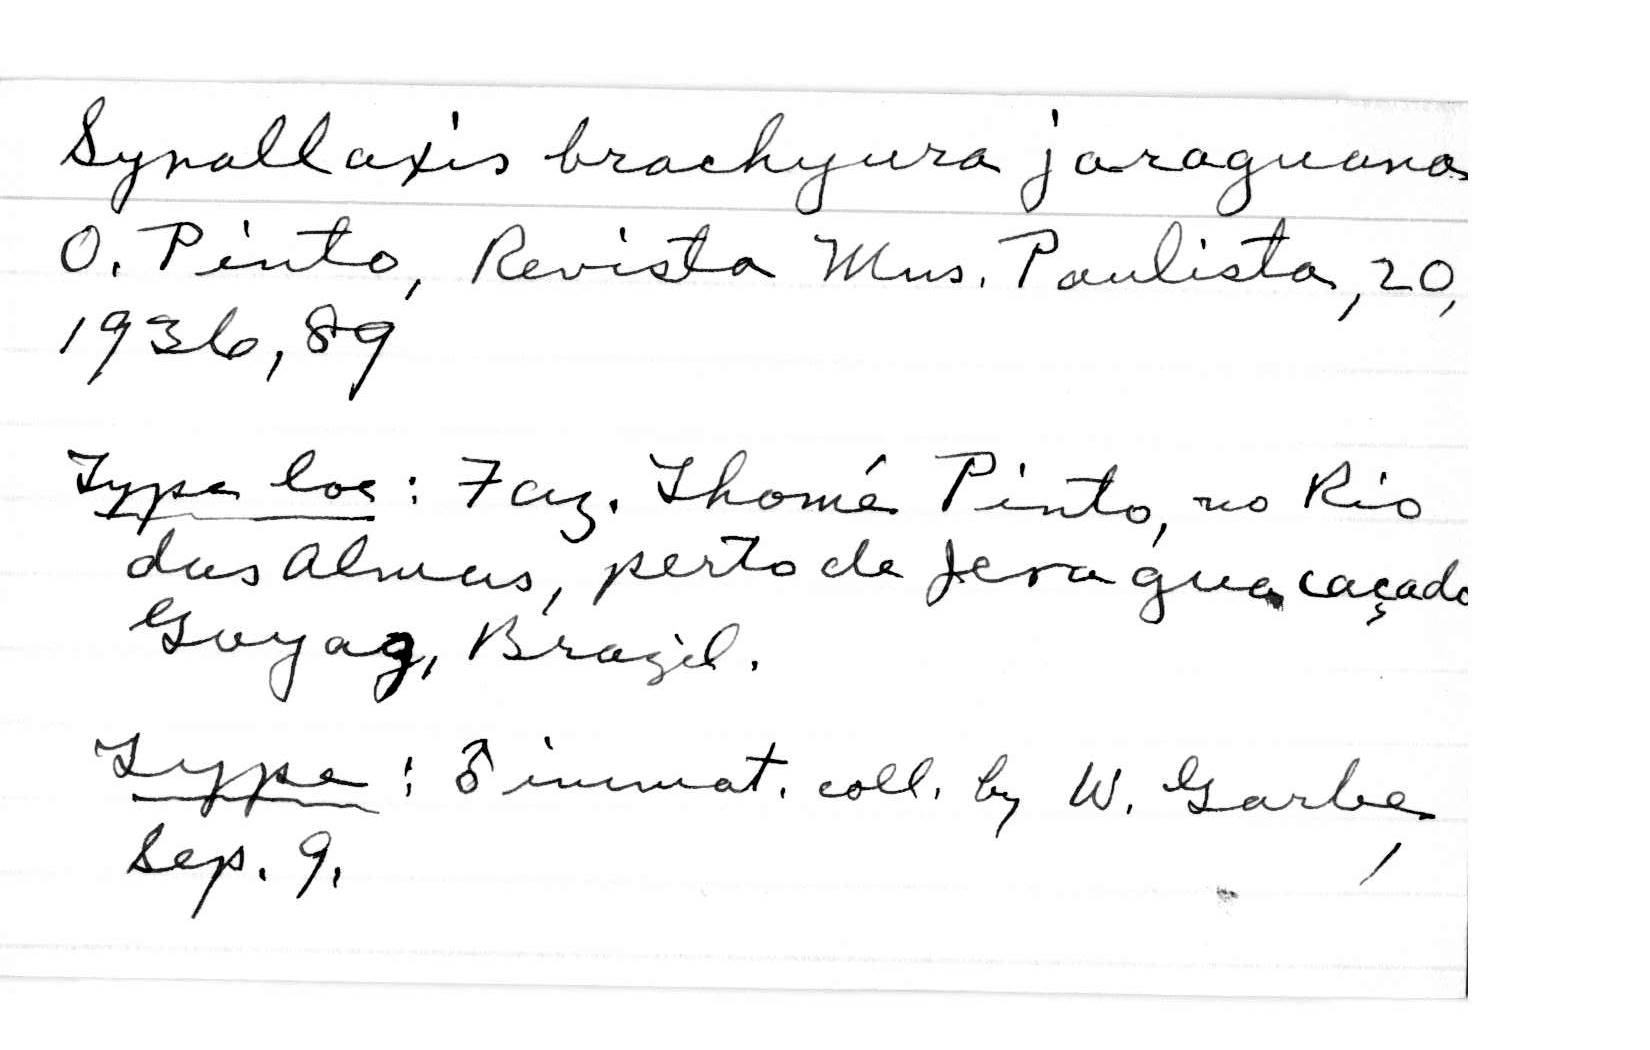 Synallaxis brachyura jaraguana
O. Pinto, Revista Mus. Paulista, 20,
1936, 89
Type loc: Faz. Thomé Pinto, no Rio
das Almas, perto de Jeragua caçado
Goyaz, Brazil.
Type: ♂ immat. coll. by W. Garbe,
Sep. 9.